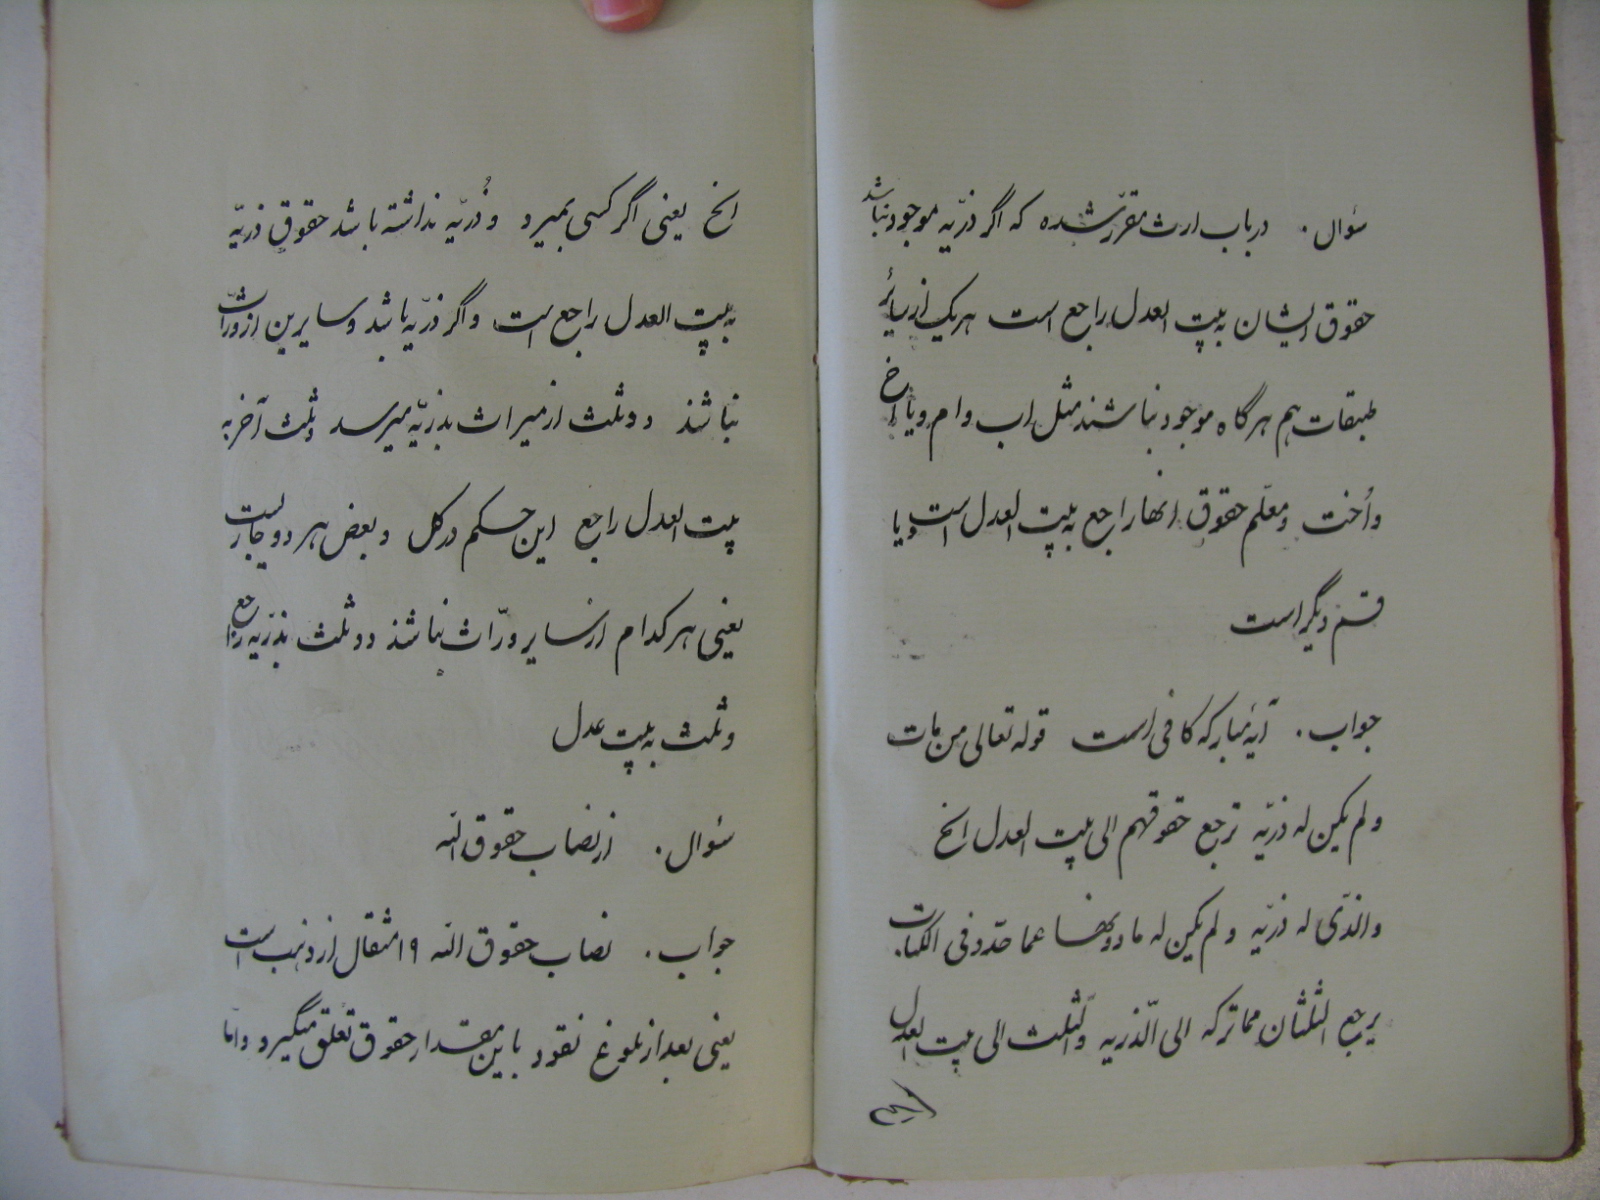 سؤال . در باب ارث مقرّر شده که اگر ذرّیه موجود نباشد
حقوق ایشان به بیت العدل راجع است هر یک از سایر
طبقات هم هرگاه موجود نباشند مثل اب و ام و یا اخ
و اُخت و معلّم حقوق انها راجع به بیت العدل است و یا
قسم دیگر است
جواب . آیهٔ مبارکه کافی است قوله تعالی من مات
و لم یکن له ذرّیه ترجع حقوقهم الی بیت العدل الخ
والّذی له ذرّیه و لم یکن له ما دونها عما حدّد فی الکتاب
یرجع الثلثان مما ترکه الی الذّریه و الثّلث الی بیت العدل
الخ یعنی اگر کسی بمیرد و ذُریّه نداشته باشد حقوق ذریّه
به بیت العدل راجع است و اگر ذرّیه باشد و سایرین از ورّاث
نباشند دو ثلث از میراث بذرّیّه میرسد و ثلث آخر به
بیت العدل راجع این حکم در کل و بعض هر دو جاریست
یعنی هر کدام از سایر ورّاث نباشند دو ثلث بذرّیه راجع
و ثلث به بیت عدل
سؤال . از نصاب حقوق الله
جواب . نصاب حقوق الله ۱۹ مثقال از ذهب است
یعنی بعد از بلوغ نقود باین مقدار حقوق تعلّق میگیرد و امّا